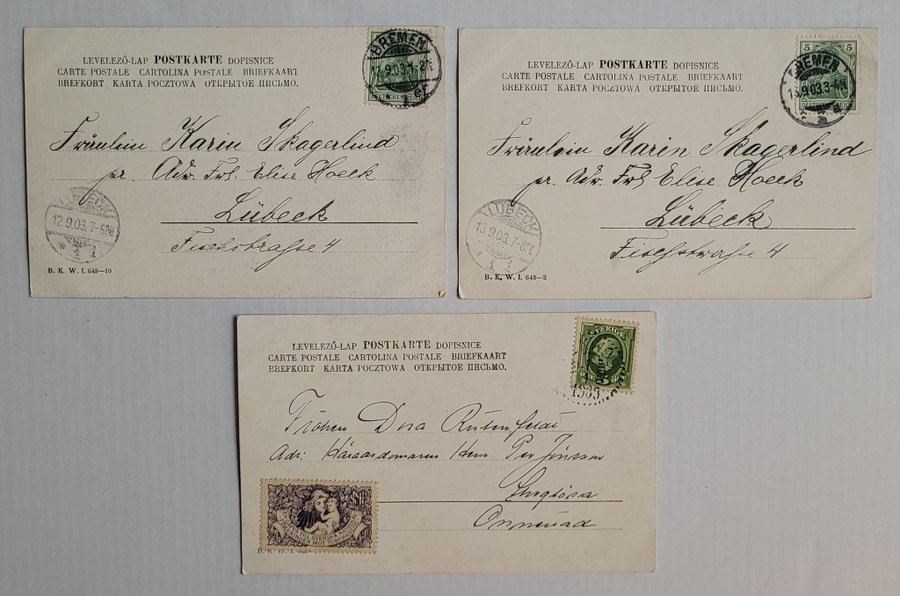 LEVELEZŐ-LAP POSTKARTE DOPISNICE
CARTE POSTALE CARTOLINA POSTALE BRIEFKAART
BREFKORT KARTA POCZTOWA ОТКРЫТОЕ ПИСЬМО.
BREMEN
Fräulein Karin Skagerlind
pr. Adr. Frl. Elise Hoeck
Lübeck
Fischstrasse 4
LÜBECK
12.9.03. 7-8N.
B. K. W. I. 648—10
LEVELEZŐ-LAP POSTKARTE DOPISNICE
CARTE POSTALE CARTOLINA POSTALE BRIEFKAART
BREFKORT KARTA POCZTOWA ОТКРЫТОЕ ПИСЬМО.
5 5
BREMEN
Fräulein Karin Skagerlind
pr. Adr. Frl. Elise Hoeck
Lübeck
Fischstrasse 4
LÜBECK
B. K. W. I. 648—2
LEVELEZŐ-LAP POSTKARTE DOPISNICE
CARTE POSTALE CARTOLINA POSTALE BRIEFKAART
BREFKORT KARTA POCZTOWA ОТКРЫТОЕ ПИСЬМО.
SVERIGE
Fröken Dora
Adr: Häradsdomaren Herr Per Jönsson